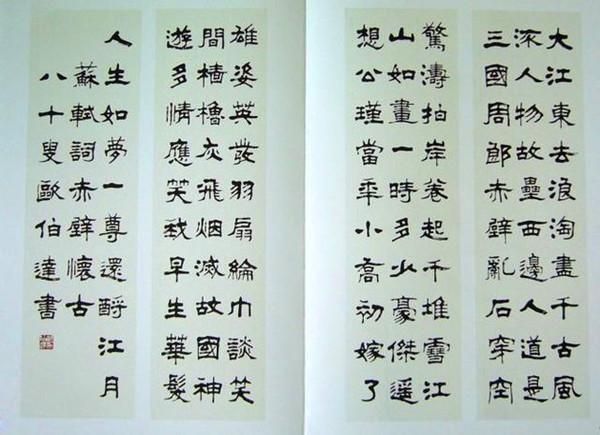 大江東去浪淘盡千古風
流人物故壘西邊人道是
三國周郎赤壁亂石穿空
驚濤拍岸卷起千堆雪江
山如畫一時多少豪傑遥
想公瑾當年小喬初嫁了
雄姿英發羽扇綸巾談笑
間檣櫓灰飛烟滅故國神
遊多情應笑我早生華髮
人生如夢一尊還酹江月
蘇軾詞赤壁懷古
八十叟歐伯達書